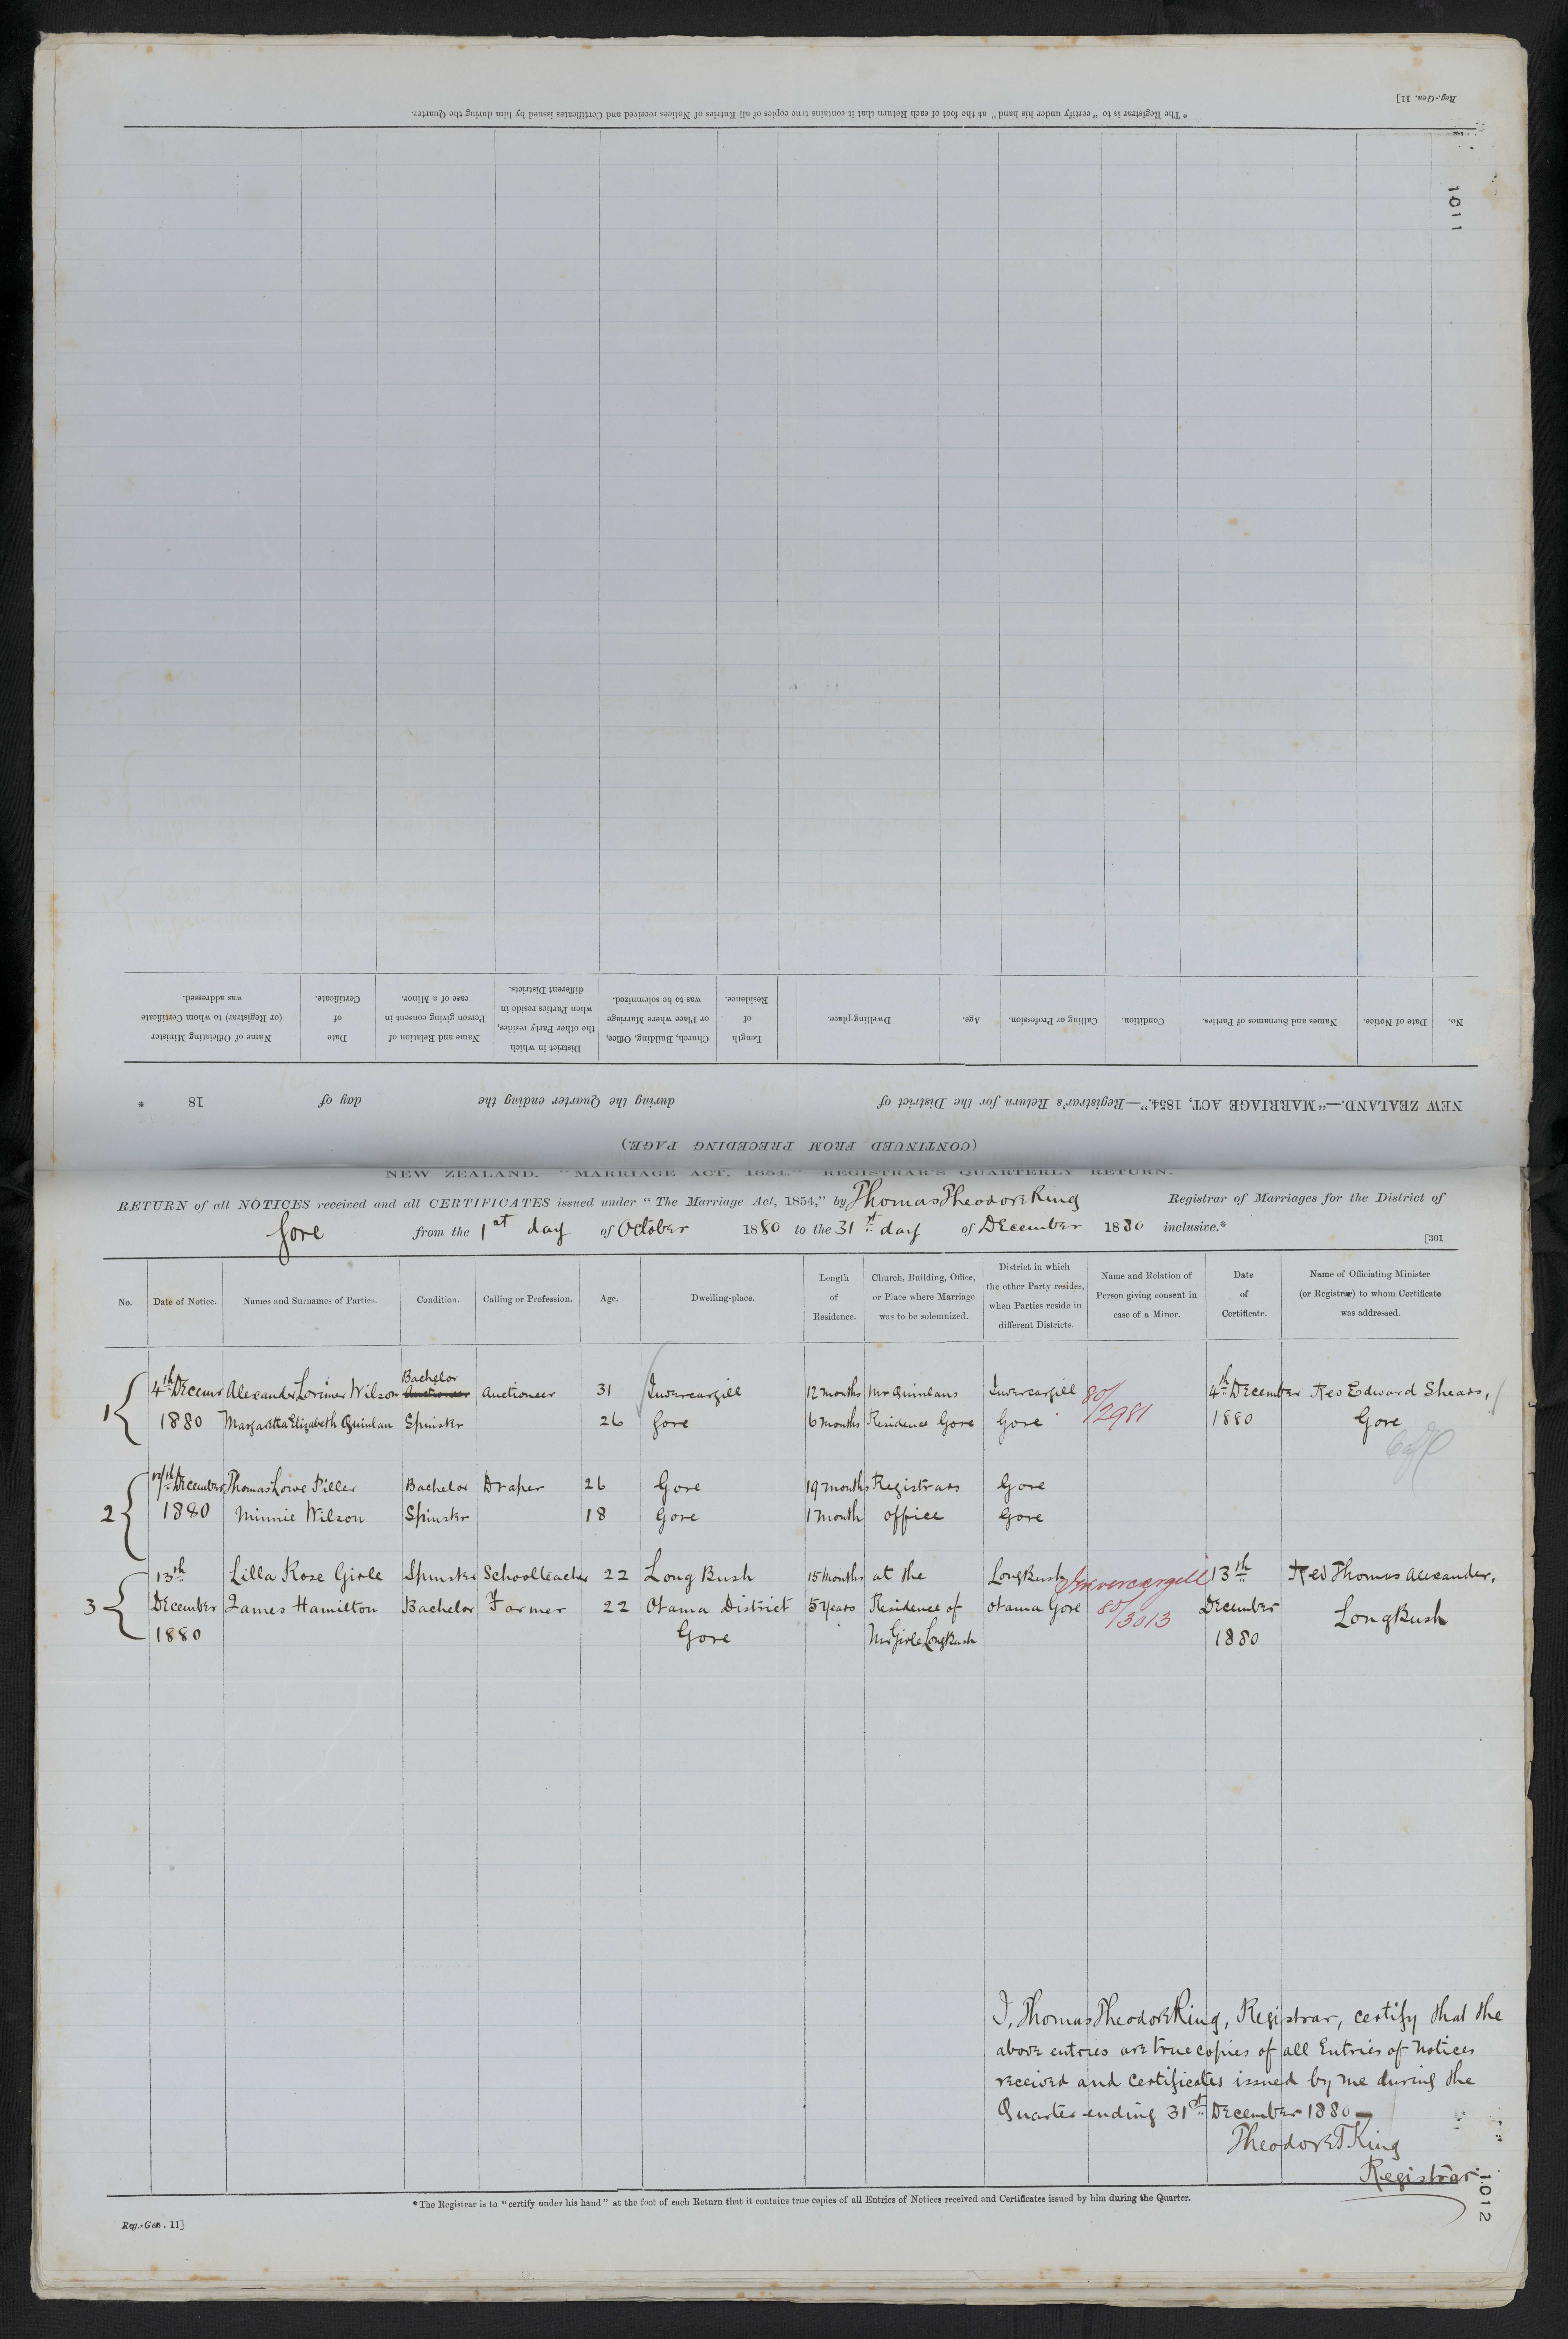 Reg.-Gen. 11]
* The Registrar is to "certify under his hand" at the foot of each Return that it contains true copies of all Entries of Notices received and Certificates issued by him during the Quarter.
1011
No.
Date of Notice.
Names and Surnames of Parties.
Condition.
Calling or Profession.
Age.
Dwelling-place.
Length of Residence.
Church, Building, Office, or Place where Marriage was to be solemnized.
District in which the other Party resides, when Parties reside in different Districts.
Name and Relation of Person giving consent in case of a Minor.
Date of Certificate.
Name of Officiating Minister (or Registrar) to whom Certificate was addressed.
NEW ZEALAND.—"MARRIAGE ACT, 1854."—Registrar's Return for the District of during the Quarter ending the day of 18 .
(CONTINUED FROM PRECEDING PAGE.)
NEW ZEALAND.—"MARRIAGE ACT, 1854."—REGISTRAR'S QUARTERLY RETURN.
RETURN of all NOTICES received and all CERTIFICATES issued under "The Marriage Act, 1854," by Thomas Theodore King Registrar of Marriages for the District of
Gore from the 1st day of October 1880 to the 31st day of December 1880 inclusive.*
[301
No.
Date of Notice.
Names and Surnames of Parties.
Condition.
Calling or Profession.
Age.
Dwelling-place.
Length of Residence.
Church, Building, Office, or Place where Marriage was to be solemnized.
District in which the other Party resides, when Parties reside in different Districts.
Name and Relation of Person giving consent in case of a Minor.
Date of Certificate.
Name of Officiating Minister (or Registrar) to whom Certificate was addressed.
Bachelor
1 4th Decemr Alexander Lorimer Wilson Auctioneer Auctioneer 31 Invercargill 12 months Mr Quinlans Invercargill 80/2981 4th December Rev Edward Shears,
1880 Margaretta Elizabeth Quinlan Spinster 26 Gore 6 months Residence Gore Gore 1880 Gore
2 December Thomas Lowe Piller Bachelor Draper 26 Gore 19 months Registrars Gore
1880 Minnie Wilson Spinster 18 Gore 1 month office Gore
3 13th Lilla Rose Girle Spinster Schoolteacher 22 Long Bush 15 months at the Long Bush Invercargill 13th Rev Thomas Alexander,
December James Hamilton Bachelor Farmer 22 Otama District 5 years Residence of Otama Gore 80/3013 December Long Bush
1880 Gore Mr Girle Long Bush 1880
I, Thomas Theodore King, Registrar, certify that the
above entries are true copies of all Entries of notices
received and certificates issued by me during the
Quarter ending 31st December 1880
Theodore T King
Registrar
* The Registrar is to "certify under his hand" at the foot of each Return that it contains true copies of all Entries of Notices received and Certificates issued by him during the Quarter.
Reg.-Gen. 11]
1012